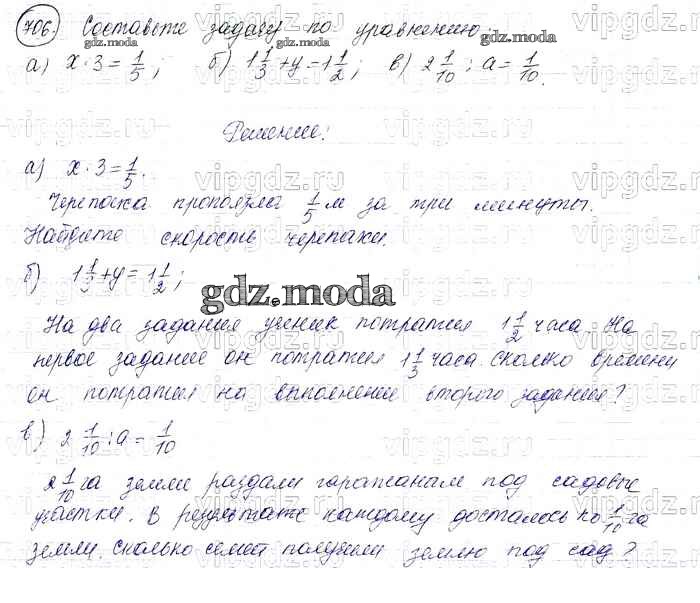 706. Составьте задачу по уравнению:
gdz.moda gdz.moda gdz.moda
а) x · 3 = 1/5; б) 1 1/3 + y = 1 1/2; в) 2 1/10 : a = 1/10.
vipgdz.ru vipgdz.ru vipgdz.ru
Решение:
а) x · 3 = 1/5.
vipgdz.ru vipgdz.ru vipgdz.ru
Черепаха проползла 1/5 м за три минуты.
Найдите скорость черепахи.
б) 1 1/3 + y = 1 1/2;
gdz.moda
На два задания ученик потратил 1 1/2 часа. На
первое задание он потратил 1 1/3 часа. Сколько времени
он потратил на выполнение второго задания?
в) 2 1/10 : a = 1/10
2 1/10 га земли раздали горожанам под садовые
участки. В результате каждому досталось по 1/10 га
земли. Сколько семей получили землю под сад?